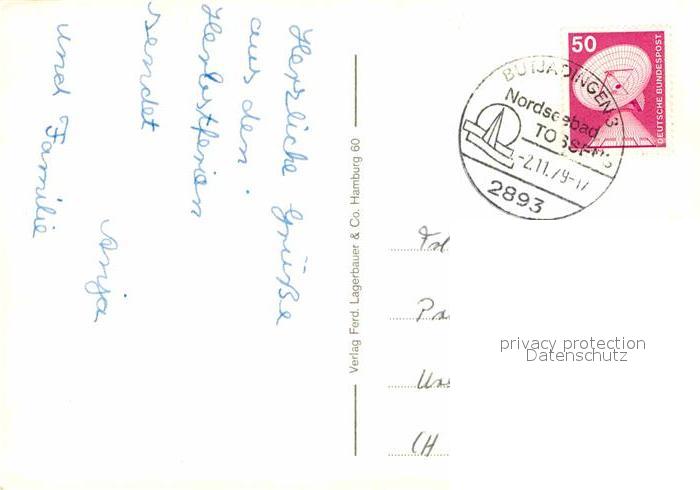 Herzliche Grüße
aus den
Herbstferien
sendet
Anja
und Familie
Verlag Ferd. Lagerbauer & Co. Hamburg 60
50
DEUTSCHE BUNDESPOST
BUTJADINGEN 3
Nordseebad
TOSSENS
-2.11.79-17
2893
CH
privacy protection
Datenschutz